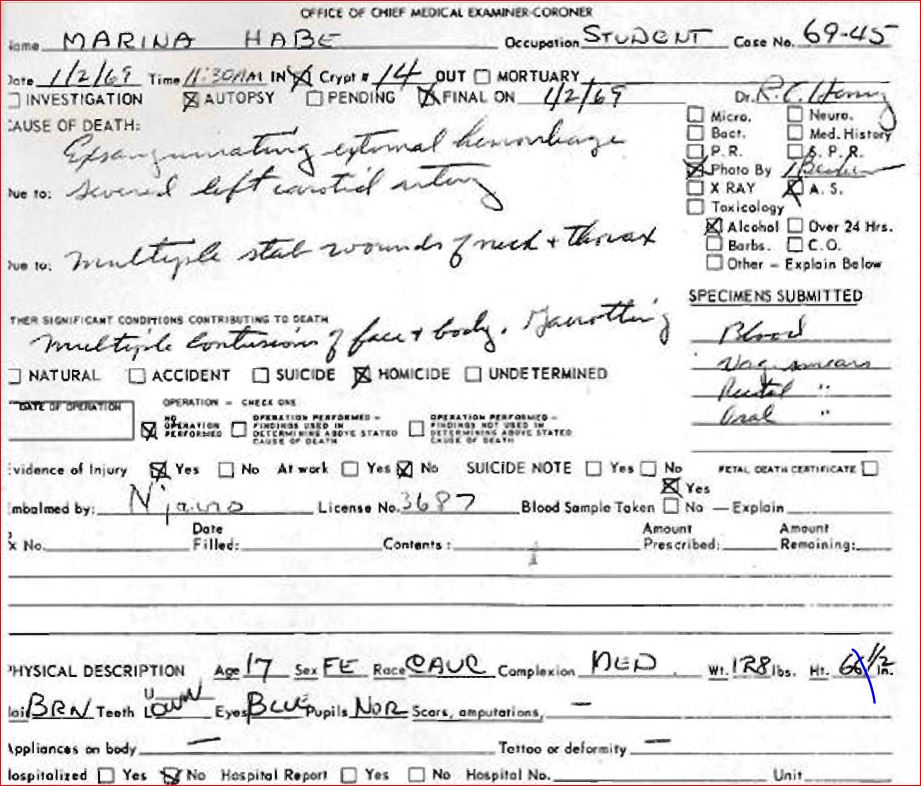 OFFICE OF CHIEF MEDICAL EXAMINER-CORONER
ame MARINA HABE Occupation STUDENT Case No. 69-45
Date 1/2/69 Time 11:30AM IN Crypt # 14 OUT MORTUARY
INVESTIGATION AUTOPSY PENDING FINAL ON 1/2/69 Dr. R. C. Henry
CAUSE OF DEATH:
Exsanguinating external hemorrhage
Due to: severed left carotid artery
Due to: multiple stab wounds of neck + thorax
Micro. Neuro.
Bact. Med. History
P.R. S.P.R.
Photo By
X RAY A.S.
Toxicology
Alcohol Over 24 Hrs.
Barbs. C.O.
Other - Explain Below
THER SIGNIFICANT CONDITIONS CONTRIBUTING TO DEATH
Multiple contusions of face + body. Garrotting
NATURAL ACCIDENT SUICIDE HOMICIDE UNDETERMINED
SPECIMENS SUBMITTED
Blood
Vag smears
Rectal "
Oral "
DATE OF OPERATION
OPERATION - CHECK ONE
NO OPERATION PERFORMED
OPERATION PERFORMED - FINDINGS USED IN DETERMINING ABOVE STATED CAUSE OF DEATH
OPERATION PERFORMED - FINDINGS NOT USED IN DETERMINING ABOVE STATED CAUSE OF DEATH
Evidence of Injury Yes No At work Yes No SUICIDE NOTE Yes No FETAL DEATH CERTIFICATE
mbalmed by: License No. 3687 Blood Sample Taken Yes No - Explain
x No. Date Filled: Contents: Amount Prescribed: Amount Remaining:
PHYSICAL DESCRIPTION Age 17 Sex FE Race CAUC Complexion MED Wt. 128 lbs. Ht. 66 1/2 in.
Hai BRN Teeth U L OWN Eyes BLUE Pupils NOR Scars, amputations, —
Appliances on body — Tattoo or deformity —
Hospitalized Yes No Hospital Report Yes No Hospital No. Unit